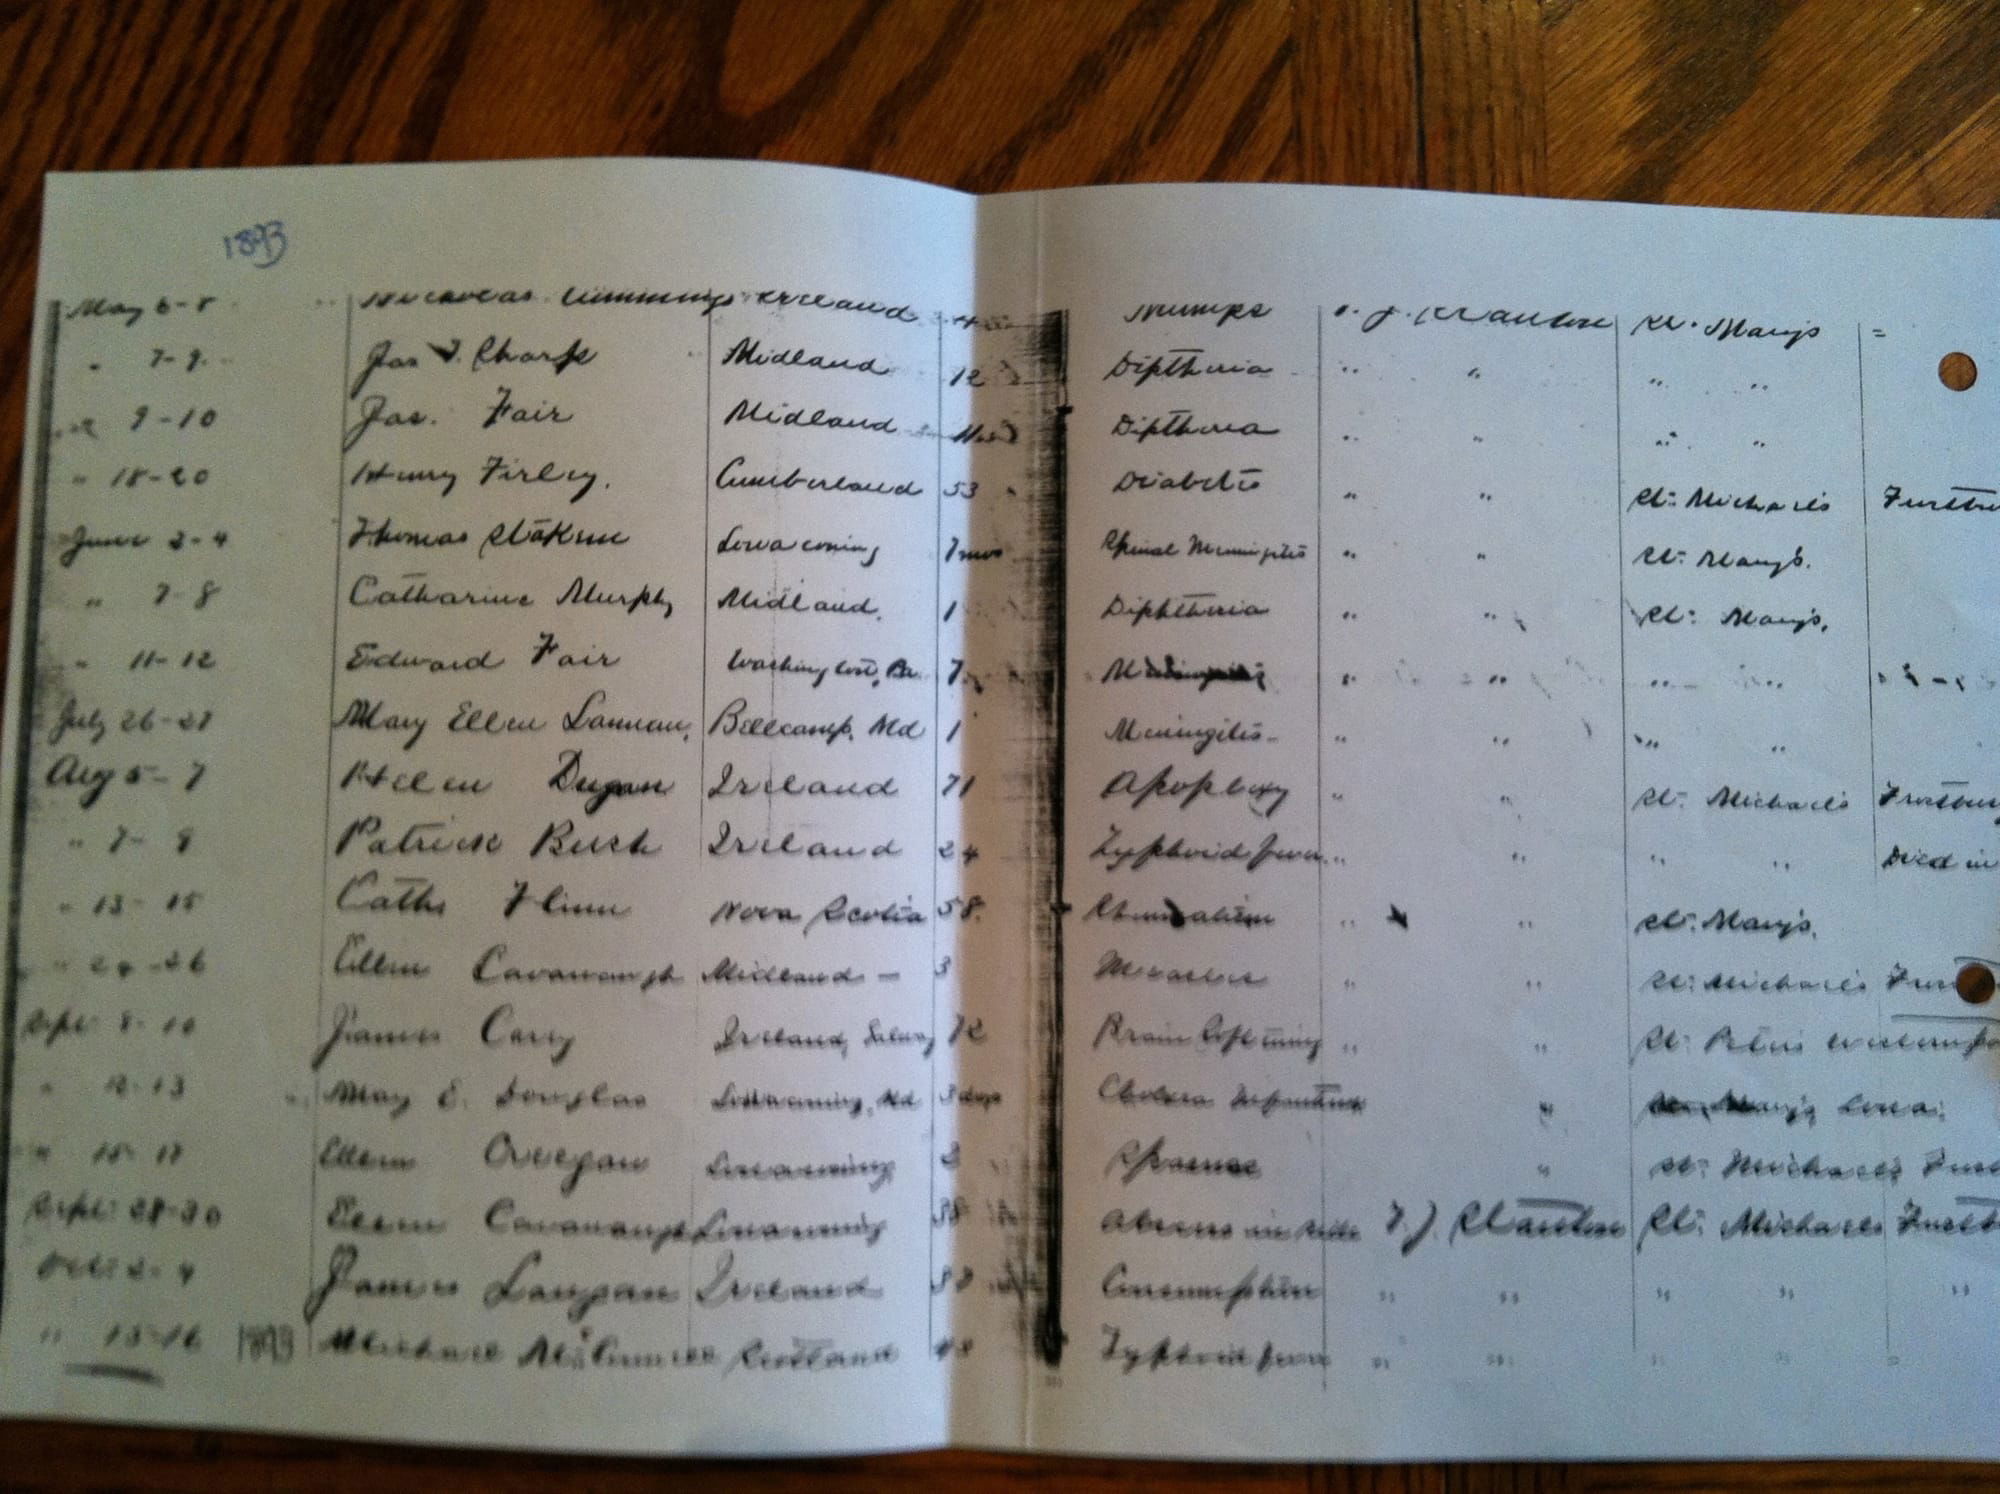 1893
May 6-8 Cummings Ireland Mumps J. Stanton St. Mary's =
" 7-9 Jas J. Sharp Midland 12 Diptheria " " " "
9-10 Jas. Fair Midland 11 Diptheria " " " "
" 18-20 Henry Firley. Cumberland 53 Diabetis " " St. Michaels
June 3-4 Thomas Lonaconing 7 mos Spinal Meningitis " " St. Mary's.
" 7-8 Catharine Murphy Midland. 1 Diphtheria " " St. Mary's.
" 11-12 Edward Fair Washington, Pa 7 " " " "
July 26-27 Mary Ellen Lannan, Bellcamp. Md 1 Meningitis- " " " "
Aug 5-7 Helen Dugan Ireland 71 Apoplexy " " St. Michael's
" 7-8 Patrick Bush Ireland 24 Typhoid fever " " " " Died in
" 13-15 Cath Flinn Nova Scotia 58. Rheumatism " " St. Mary's.
" 24-26 Ellen Cavanaugh Midland - 3 Measles " " St. Michael's
Sept 8-10 James Carey Ireland, Galway 72 Brain Softening " " St. Peters
" 13 May E. Douglas Lonaconing, Md 3 days Cholera Infantum " St. Mary's Lona.
" 15-17 Ellen Lonaconing Spasms " St. Michael's
Sept. 28-30 Ellen Cavanaugh Lonaconing 38 Abscess in side J. Stanton St. Michaels
Oct. 2-4 James Ireland Consumption " " " " "
" 15-16 1893 Michael Scotland 48 Typhoid fever " " " " "